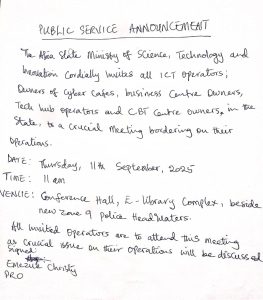 PUBLIC SERVICE ANNOUNCEMENT
The Abia State Ministry of Science, Technology and
Innovation Cordially Invites all ICT operators;
Owners of Cyber Cafes, business Centre Owners,
Tech hub operators and CBT Centre owners, in the
State, to a crucial meeting bordering on their
Operations.
DATE: Thursday, 11th September, 2025
TIME: 11 am
VENUE: Conference Hall, E-Library Complex, beside
new zone 9 police HeadQuaters.
All invited operators are to attend this meeting
as crucial issue on their operations will be discussed
Signed
Emezue Christy
PRO